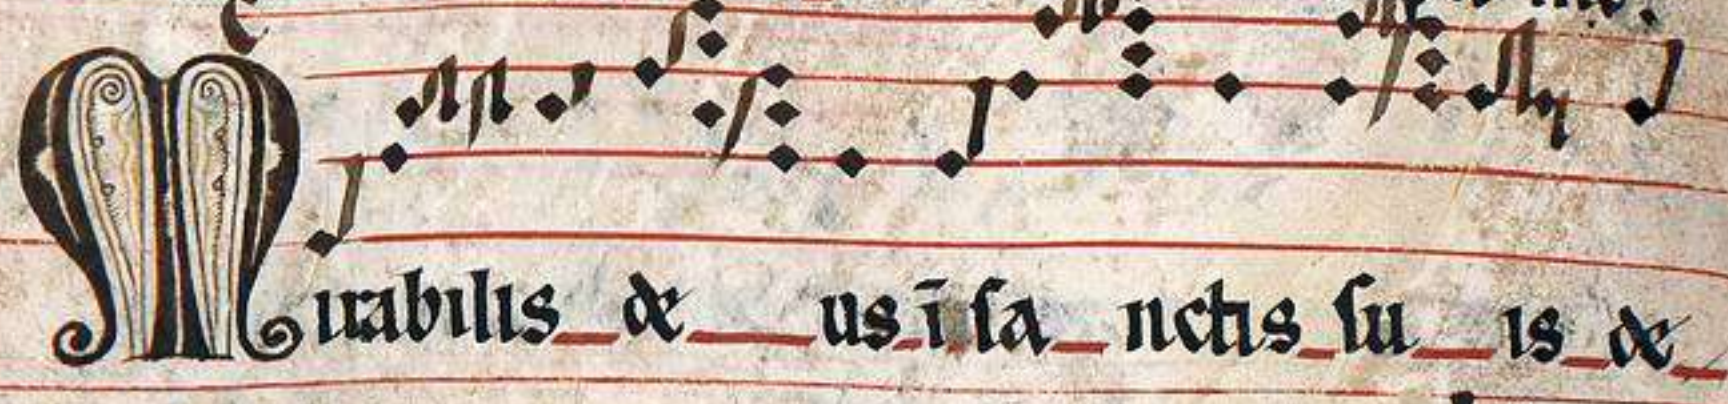 Mirabilis de us ī sa nctis su is de